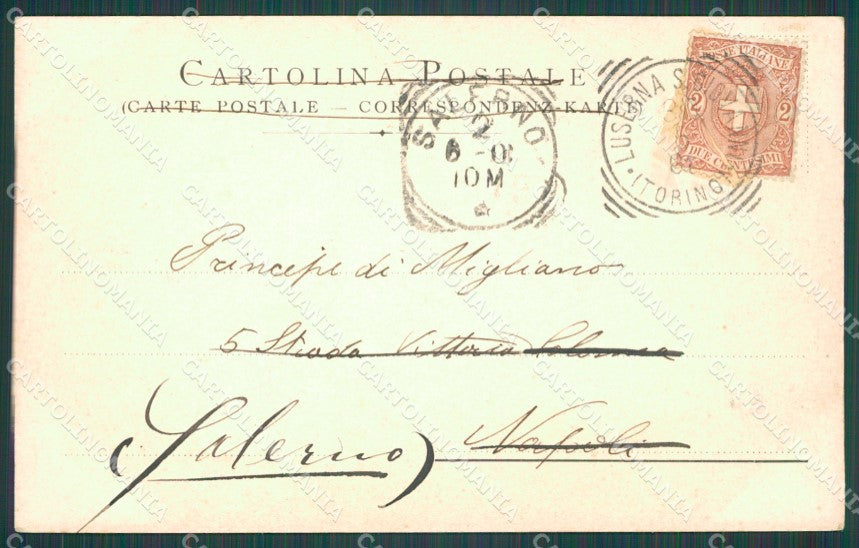 CARTOLINA POSTALE
(CARTE POSTALE — CORRESPONDENZ-KARTE
SALERNO
2
6 - 01
10 M
LUSERNA S.
(TORINO)
POSTE ITALIANE
2 2
DUE CENTESIMI
Principe di Migliano
5 Strada Vittoria Colonna
Napoli
(Salerno)
CARTOLINOMANIA